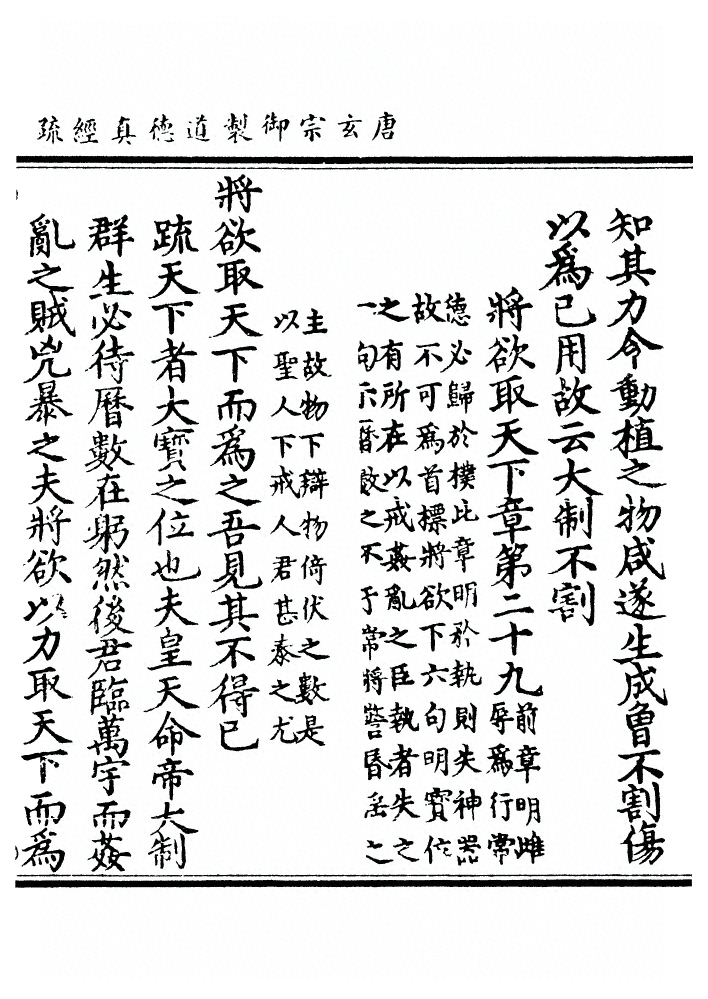 唐玄宗御製道德真經疏
知其力令動植之物咸遂生成曾不割傷
以為己用故云大制不割
將欲取天下章第二十九
前章明雌
辱為行常
德必歸於樸此章明於執則失神器
故不可為首標將欲下六句明寶位
之有所在以戒姦亂之臣執者失之
一句示曆數之不予常將警昏淫之
主故物下辯物倚伏之數是
以聖人下戒人君甚泰之尤
將欲取天下而為之吾見其不得已
疏天下者大寶之位也夫皇天命帝大制
群生必待曆數在躬然後君臨萬宇而姦
亂之賊兇暴之夫將欲以力取天下而為